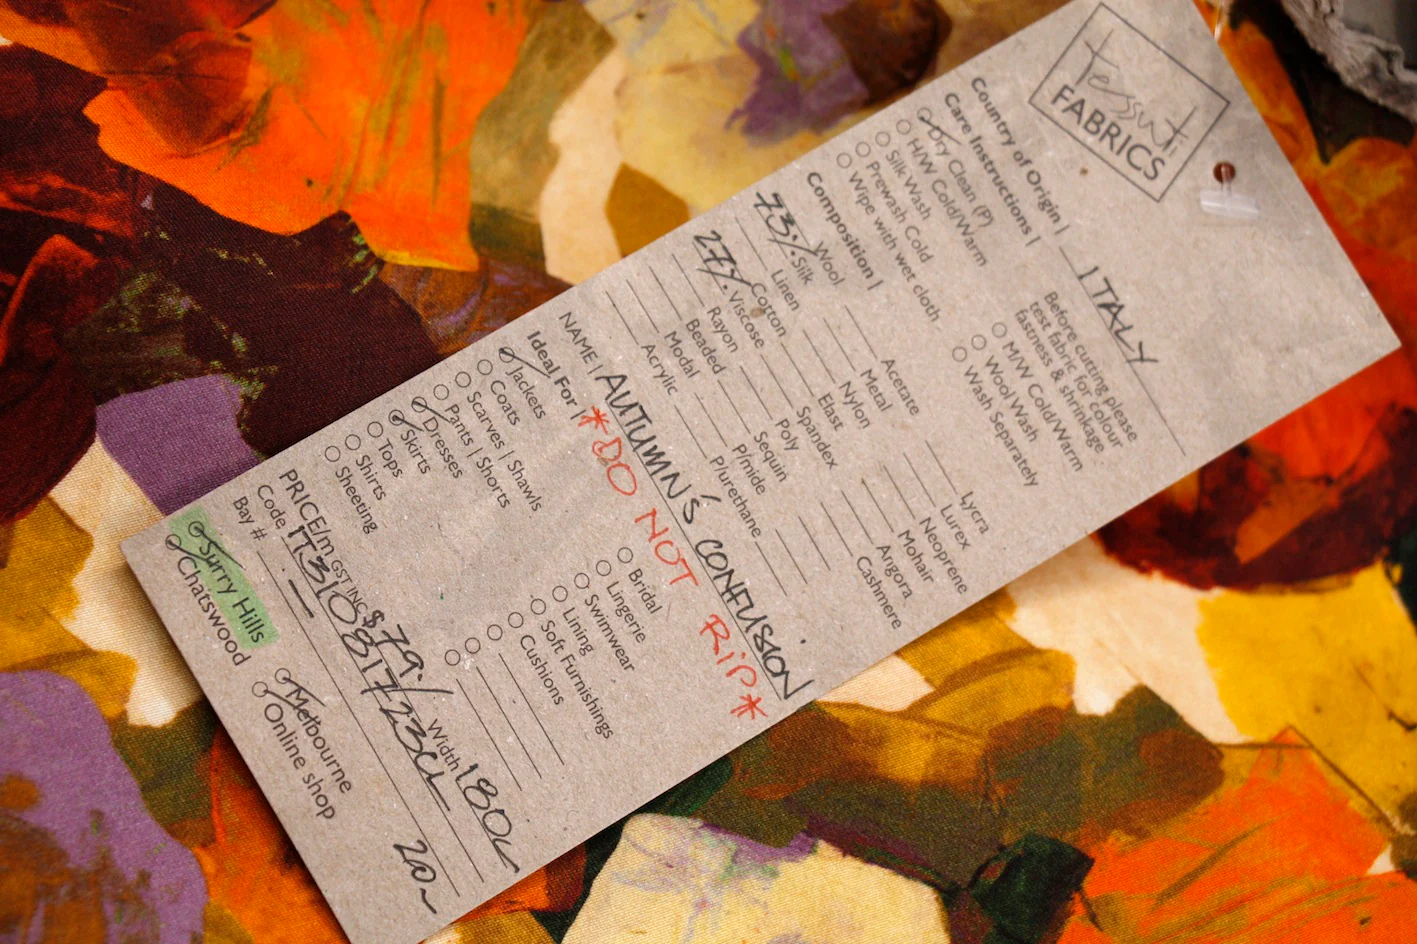 Tessuti
FABRICS
Country of Origin | ITALY
Care Instructions |
Dry Clean (P)
H/W Cold/Warm
Silk Wash
Prewash Cold
Wipe with wet cloth
Before cutting please
test fabric for colour
fastness & shrinkage
M/W Cold/Warm
Wool Wash
Wash Separately
Composition |
Wool Acetate Lycra
73% Silk Metal Lurex
Linen Nylon Neoprene
Cotton Elast Mohair
27% Viscose Spandex Angora
Rayon Poly Cashmere
Beaded Sequin
Modal P/mide
Acrylic P/urethane
NAME | AUTUMN'S CONFUSION
Ideal For | *DO NOT RIP*
Jackets Bridal
Coats Lingerie
Scarves | Shawls Swimwear
Pants | Shorts Lining
Dresses Soft Furnishings
Skirts Cushions
Tops
Shirts
Sheeting
PRICE/m GST INC $79.- Width 180c
Code IT310817/23CL
Bay # —
Surry Hills Melbourne 20m
Chatswood Online shop